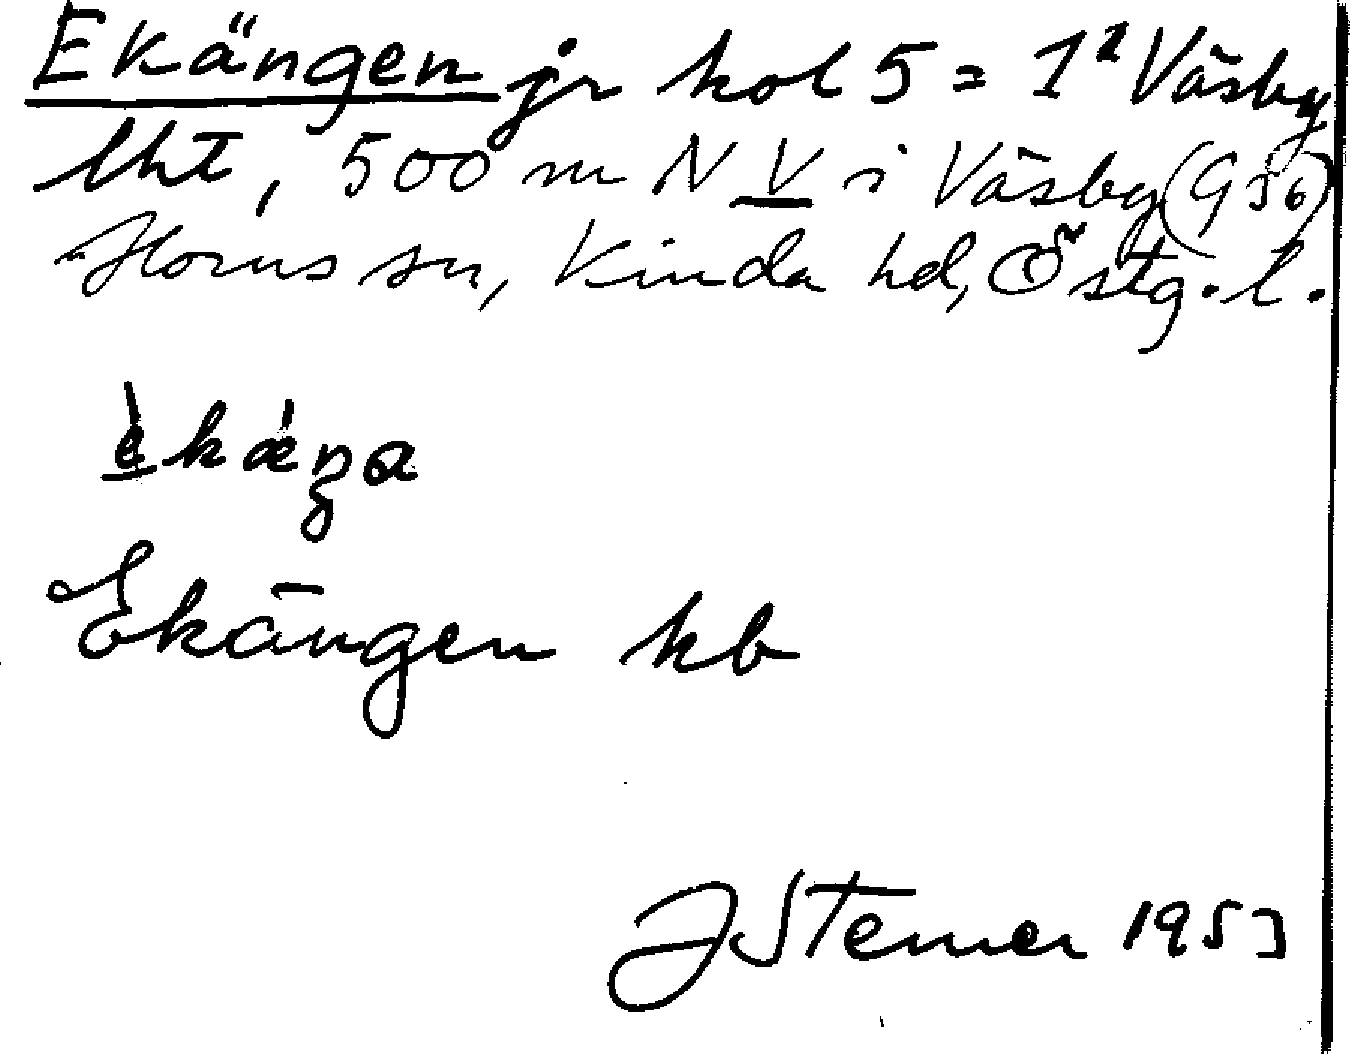 Ekängen jr kol 5 = 1² Väsby
lht, 500 m N V i Väsby (G 56)
Horns sn, Kinda hd, Östg. l.
èkǽŋa
Ekängen kb
J Sterner 1953